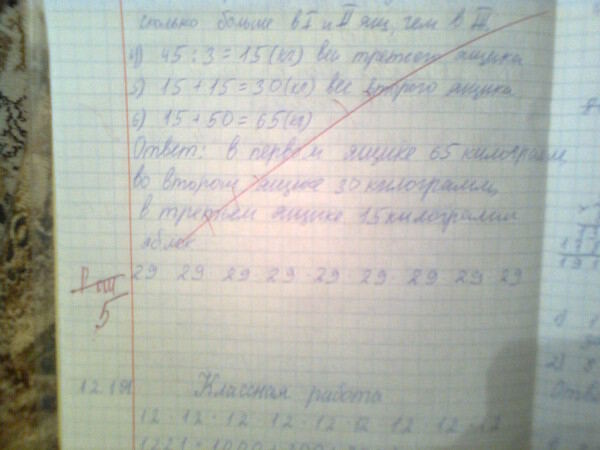 сколько больше в I и II ящ, чем в III.
4) 45 : 3 = 15 (кг) вес третьего ящика
5) 15 + 15 = 30 (кг) вес второго ящика
6) 15 + 50 = 65 (кг)
Ответ: в первом ящике 65 килограмм,
во втором ящике 30 килограмм,
в третьем ящике 15 килограмм
яблок.
29 29 29 29 29 29 29 29 29
5
Классная работа
12 12 12 12 12 12 12 12 12